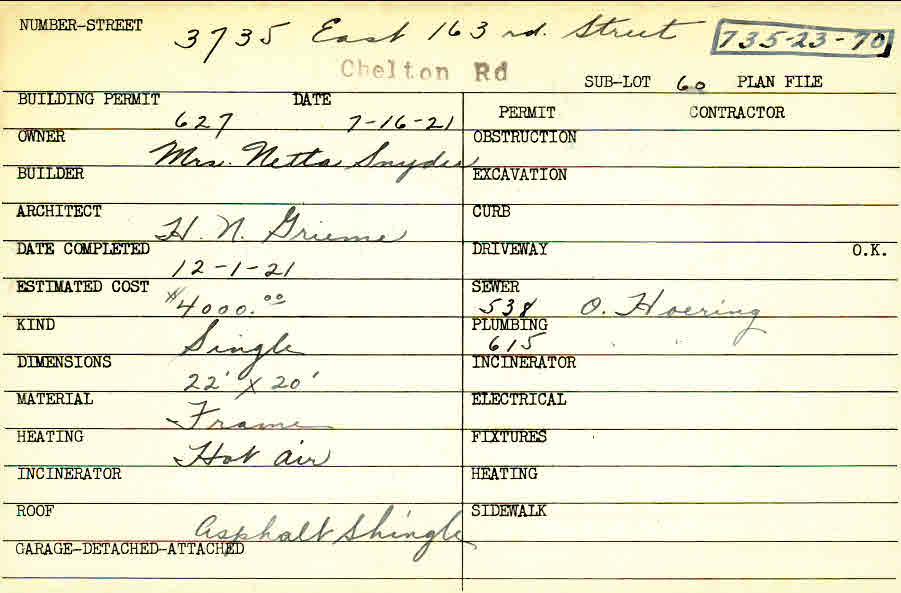 NUMBER-STREET 3735 East 163 rd. Street 735-23-70
Chelton Rd
SUB-LOT 60 PLAN FILE
BUILDING PERMIT DATE PERMIT CONTRACTOR
627 7-16-21
OWNER Mrs. Netta Snyder OBSTRUCTION
BUILDER EXCAVATION
ARCHITECT H. N. Grieme CURB
DATE COMPLETED 12-1-21 DRIVEWAY O.K.
ESTIMATED COST $4000.00 SEWER 538 O. Hoering
KIND Single PLUMBING 615 " "
DIMENSIONS 22' X 20' INCINERATOR
MATERIAL Frame ELECTRICAL
HEATING Hot air FIXTURES
INCINERATOR HEATING
ROOF Asphalt Shingle SIDEWALK
GARAGE-DETACHED-ATTACHED